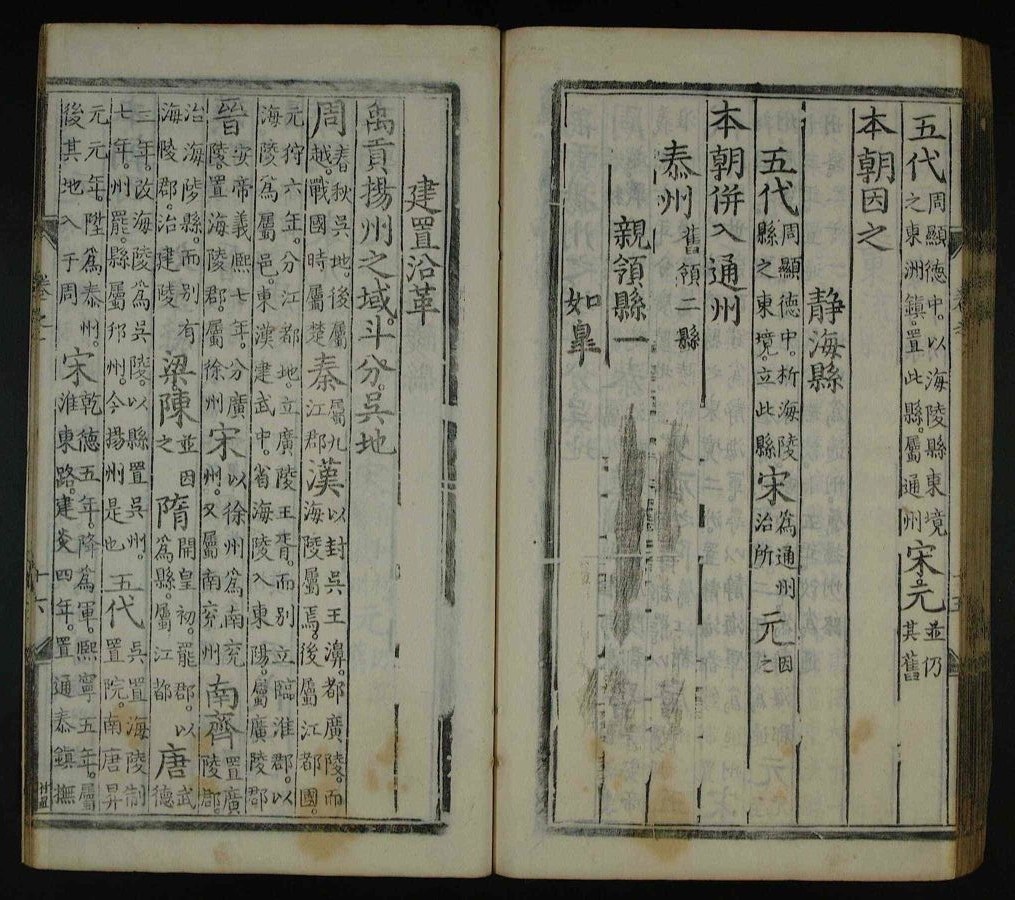 五代周顯德中。以海陵縣東境之東洲鎮。置此縣。屬通州宋元並仍其舊
本朝因之
静海縣
五代周顯德中。析海陵縣之東境。立此縣宋為通州治所元因之
本朝併入通州
泰州舊領二縣
親領縣一
如臯
建置沿革
禹貢揚州之域。斗分。吳地
周春秋吳地。後屬越。戰國時屬楚秦屬九江郡漢以封吳王濞。都廣陵。而海陵屬焉。後屬江都國。
元狩六年。分江都地。立廣陵王胥。而别立臨淮郡。以海陵為屬邑。東漢建武中。省海陵入東陽。屬廣陵郡。
晉安帝義熙七年。分廣陵。置海陵郡。屬徐州宋以徐州為南兖州。又屬南兖州南齊置廣陵郡。
治海陵縣。而别有海陵郡。治建陵梁陳並因之隋開皇初。罷郡。以為縣。屬江都唐武德
三年。改海陵為吳陵。以縣置吳州。七年。州罷。縣屬邗州。今揚州是也五代吳置海陵制置院。南唐昇
元元年。陞為泰州。後其地入于周宋乾德五年。降為軍。熙寧五年。屬淮東路。建炎四年。置通泰鎮撫
十六